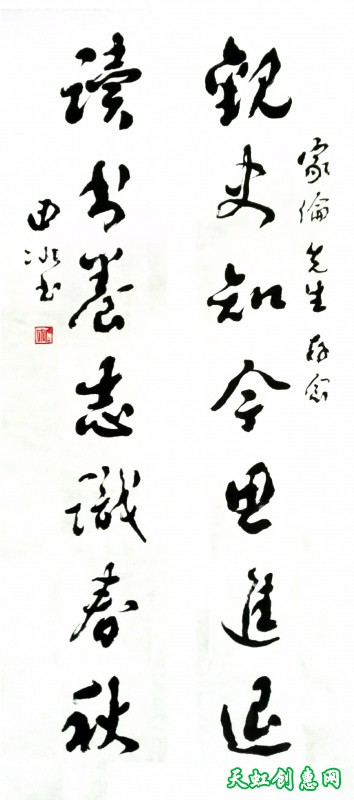 家倫先生存念
觀史知今思進退
讀書養志識春秋
田冰书
天虹创惠网